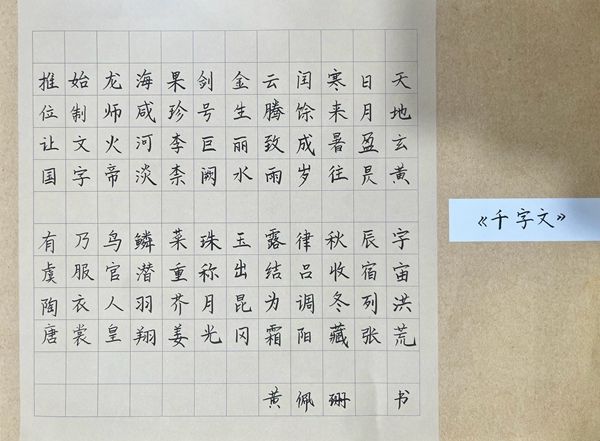 天地玄黄 宇宙洪荒
日月盈昃 辰宿列张
寒来暑往 秋收冬藏
闰馀成岁 律吕调阳
云腾致雨 露结为霜
金生丽水 玉出昆冈
剑号巨阙 珠称月光
果珍李柰 菜重芥姜
海咸河淡 鳞潜羽翔
龙师火帝 鸟官人皇
始制文字 乃服衣裳
推位让国 有虞陶唐
黄佩珊 书
《千字文》